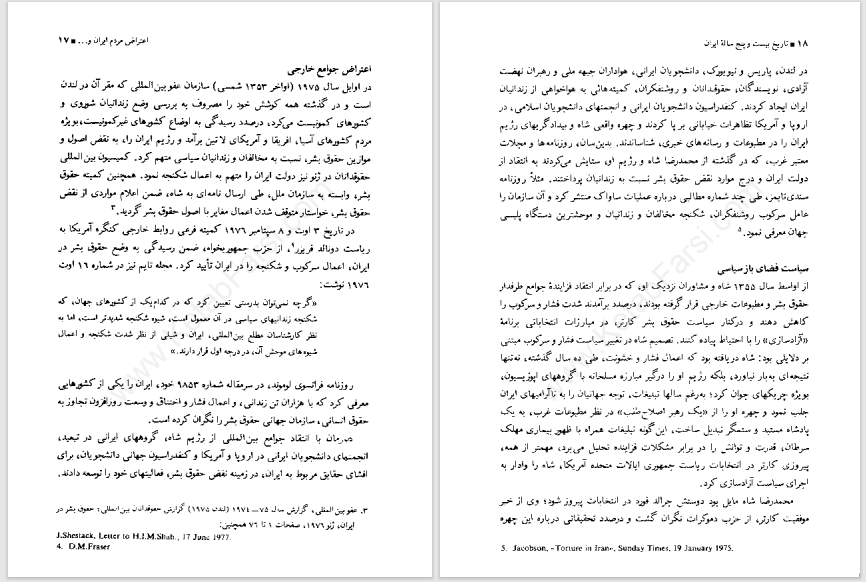 اعتراض مردم ایران و... ■ ۱۷
اعتراض جوامع خارجی
در اوایل سال ۱۹۷۵ (اواخر ۱۳۵۳ شمسی) سازمان عفو بین‌المللی که مقر آن در لندن
است و در گذشته همه کوشش خود را مصروف به بررسی وضع زندانیان شوروی و
کشورهای کمونیست می‌کرد، درصدد رسیدگی به اوضاع کشورهای غیرکمونیست، بویژه
مردم کشورهای آسیا، افریقا و آمریکای لاتین برآمد و رژیم ایران را، به نقض اصول و
موازین حقوق بشر، نسبت به مخالفان و زندانیان سیاسی متهم کرد. کمیسیون بین‌المللی
حقوقدانان در ژنو نیز دولت ایران را متهم به اعمال شکنجه نمود. همچنین کمیته حقوق
بشر، وابسته به سازمان ملل، طی ارسال نامه‌ای به شاه، ضمن اعلام مواردی از نقض
حقوق بشر، خواستار متوقف شدن اعمال مغایر با اصول حقوق بشر گردید.۳
در تاریخ ۳ اوت و ۸ سپتامبر ۱۹۷۶ کمیته فرعی روابط خارجی کنگره آمریکا به
ریاست دونالد فریزر۴، از حزب جمهوریخواه، ضمن رسیدگی به وضع حقوق بشر در
ایران، اعمال سرکوب و شکنجه را در ایران تأیید کرد. مجله تایم نیز در شماره ۱۶ اوت
۱۹۷۶ نوشت:
«گرچه نمی‌توان بدرستی تعیین کرد که در کدام‌یک از کشورهای جهان، که
شکنجه زندانیهای سیاسی در آن معمول است، شیوه شکنجه شدیدتر است، اما به
نظر کارشناسان مطلع بین‌المللی، ایران و شیلی از نظر شدت شکنجه و اعمال
شیوه‌های موحش آن، در درجه اول قرار دارند.»
روزنامه فرانسوی لوموند، در سرمقاله شماره ۹۸۵۳ خود، ایران را یکی از کشورهایی
معرفی کرد که با هزاران تن زندانی، و اعمال فشار و اختناق و وسعت روزافزون تجاوز به
حقوق انسانی، سازمان جهانی حقوق بشر را نگران کرده است.
همزمان با انتقاد جوامع بین‌المللی از رژیم شاه، گروههای ایرانی در تبعید،
انجمنهای دانشجویان ایرانی در اروپا و آمریکا و کنفدراسیون جهانی دانشجویان، برای
افشای حقایق مربوط به ایران، در زمینه نقض حقوق بشر، فعالیتهای خود را توسعه دادند.
۳. عفو بین‌الملل، گزارش سال ۷۵ــ۱۹۷۴ (لندن ۱۹۷۵) گزارش حقوقدانان بین‌المللی؛ حقوق بشر در
ایران، ژنو ۱۹۷۶، صفحات ۱ تا ۷۶ همچنین:
J.Shestack, Letter to H.I.M.Shah., 17 June 1977.
4. D.M.Fraser
۱۸ ■ تاریخ بیست و پنج سالهٔ ایران
در لندن، پاریس و نیویورک، دانشجویان ایرانی، هواداران جبهه ملی و رهبران نهضت
آزادی، نویسندگان، حقوقدانان و روشنفکران، کمیته‌هائی به هواخواهی از زندانیان
ایران ایجاد کردند. کنفدراسیون دانشجویان ایرانی و انجمنهای دانشجویان اسلامی، در
اروپا و آمریکا تظاهرات خیابانی بر پا کردند و چهره واقعی شاه و بیدادگریهای رژیم
ایران را در مطبوعات و رسانه‌های خبری، شناساندند. بدین‌سان، روزنامه‌ها و مجلات
معتبر غرب، که در گذشته از محمدرضا شاه و رژیم او، ستایش می‌کردند به انتقاد از
دولت ایران و درج موارد نقض حقوق بشر نسبت به زندانیان پرداختند. مثلاً روزنامه
سندی‌تایمز، طی چند شماره مطالبی درباره عملیات ساواک منتشر کرد و آن سازمان را
عامل سرکوب روشنفکران، شکنجه مخالفان و زندانیان و موحشترین دستگاه پلیسی
جهان معرفی نمود.۵
سیاست فضای باز سیاسی
از اواسط سال ۱۳۵۵ شاه و مشاوران نزدیک او، که در برابر انتقاد فزایندهٔ جوامع طرفدار
حقوق بشر و مطبوعات خارجی قرار گرفته بودند، درصدد برآمدند شدت فشار و سرکوب را
کاهش دهند و درکنار سیاست حقوق بشر کارتر، در مبارزات انتخاباتی برنامهٔ
«آزادسازی» را با احتیاط پیاده کنند. تصمیم شاه در تغییر سیاست فشار و سرکوب مبتنی
بر دلایلی بود: شاه دریافته بود که اعمال فشار و خشونت، طی ده سال گذشته، نه‌تنها
نتیجه‌ای به‌بار نیاورد، بلکه رژیم او را درگیر مبارزه مسلحانه با گروههای اپوزیسیون،
بویژه چریکهای جوان کرد؛ به‌رغم سالها تبلیغات، توجه جهانیان را به ناآرامیهای ایران
جلب نمود و چهره او را از «یک رهبر اصلاح‌طلب» در نظر مطبوعات غرب، به یک
پادشاه مستبد و ستمگر تبدیل ساخت، این‌گونه تبلیغات همراه با ظهور بیماری مهلک
سرطان، قدرت و توانش را در برابر مشکلات فزاینده تحلیل می‌برد، مهمتر از همه،
پیروزی کارتر در انتخابات ریاست جمهوری ایالات متحده آمریکا، شاه را وادار به
اجرای سیاست آزادسازی کرد.
محمدرضا شاه مایل بود دوستش جرالد فورد در انتخابات پیروز شود؛ وی از خبر
موفقیت کارتر، از حزب دموکرات نگران گشت و درصدد تحقیقاتی درباره این چهره
5. Jacobson, «Torture in Iran», Sunday Times, 19 January 1975.